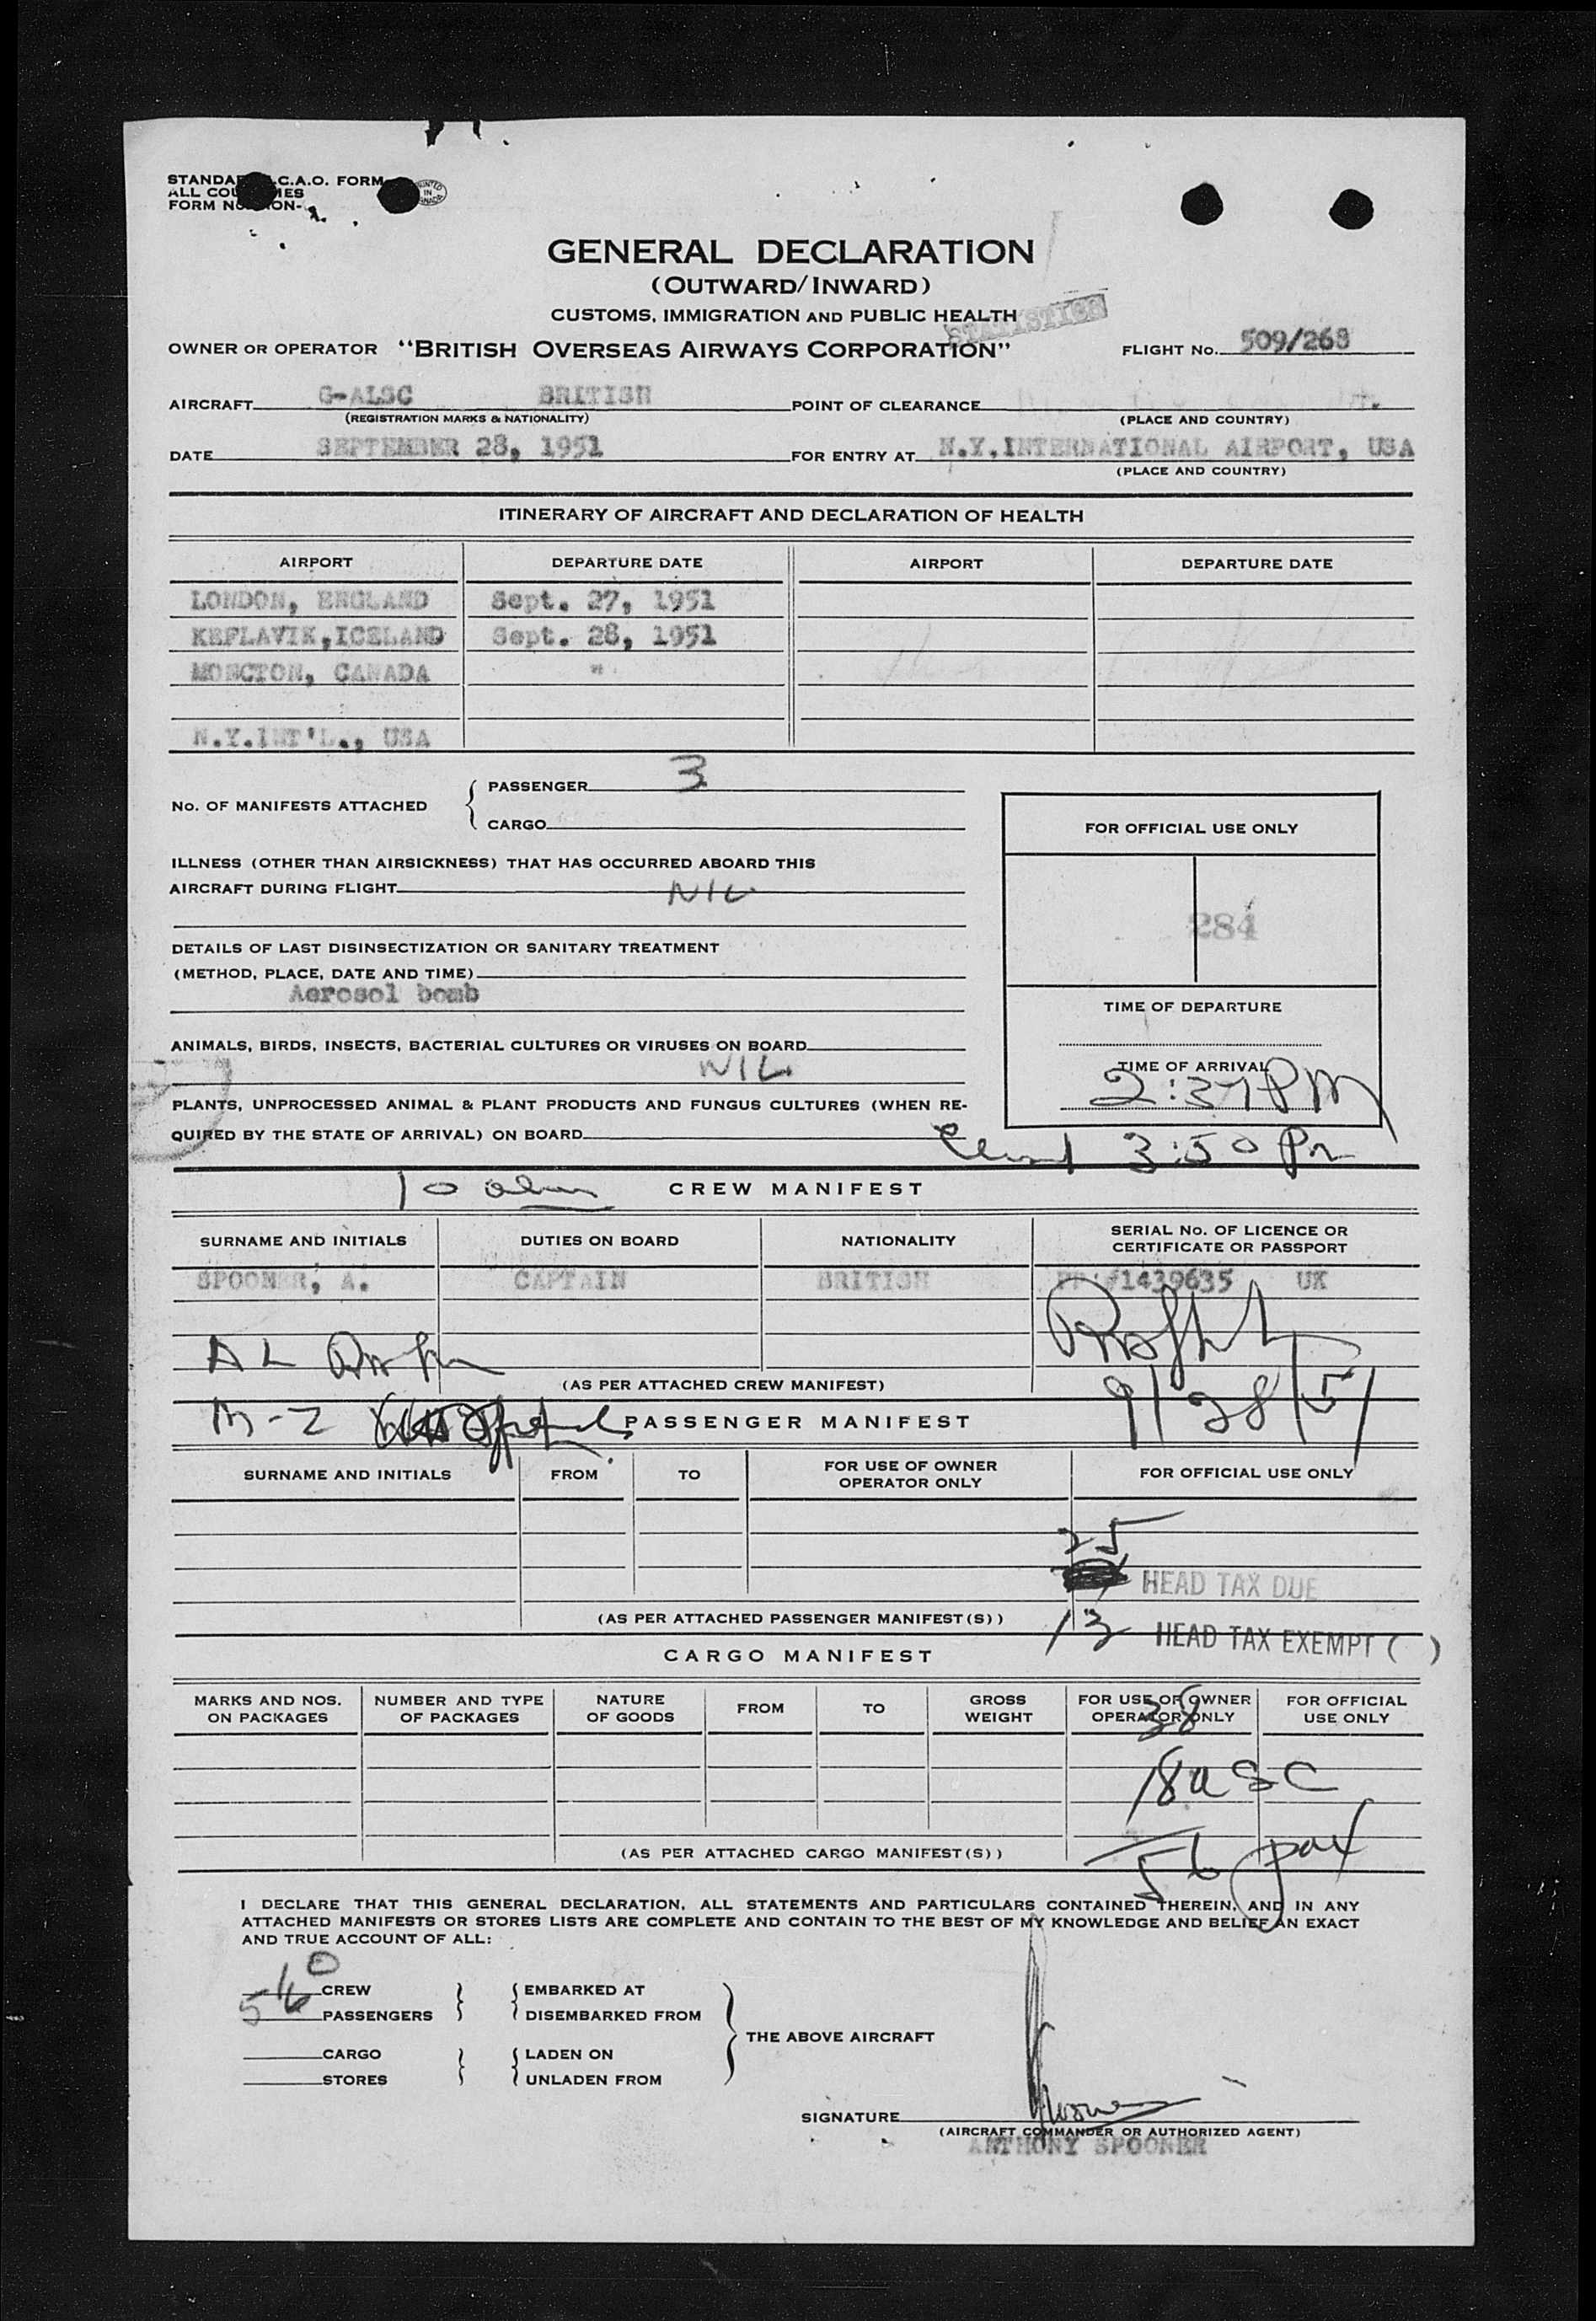 STANDA C.A.O. FORM
ALL COU IES
FORM NO ON-
PRINTED IN CANADA
GENERAL DECLARATION
(OUTWARD/INWARD)
CUSTOMS, IMMIGRATION AND PUBLIC HEALTH
STATISTICS
OWNER OR OPERATOR "BRITISH OVERSEAS AIRWAYS CORPORATION" FLIGHT No. 509/268
AIRCRAFT G-ALSC BRITISH POINT OF CLEARANCE
(REGISTRATION MARKS & NATIONALITY) (PLACE AND COUNTRY)
DATE SEPTEMBER 28, 1951 FOR ENTRY AT N.Y.INTERNATIONAL AIRPORT, USA
(PLACE AND COUNTRY)
ITINERARY OF AIRCRAFT AND DECLARATION OF HEALTH
AIRPORT DEPARTURE DATE AIRPORT DEPARTURE DATE
LONDON, ENGLAND Sept. 27, 1951
KEFLAVIK,ICELAND Sept. 28, 1951
MONCTON, CANADA "
N.Y.INT'L., USA
No. OF MANIFESTS ATTACHED { PASSENGER 3
CARGO
FOR OFFICIAL USE ONLY
284
ILLNESS (OTHER THAN AIRSICKNESS) THAT HAS OCCURRED ABOARD THIS
AIRCRAFT DURING FLIGHT NIL
DETAILS OF LAST DISINSECTIZATION OR SANITARY TREATMENT
(METHOD, PLACE, DATE AND TIME)
Aerosol bomb
TIME OF DEPARTURE
ANIMALS, BIRDS, INSECTS, BACTERIAL CULTURES OR VIRUSES ON BOARD
NIL
TIME OF ARRIVAL
2:37 PM
PLANTS, UNPROCESSED ANIMAL & PLANT PRODUCTS AND FUNGUS CULTURES (WHEN RE-
QUIRED BY THE STATE OF ARRIVAL) ON BOARD
3:50 Pm
10 CREW MANIFEST
SURNAME AND INITIALS DUTIES ON BOARD NATIONALITY SERIAL No. OF LICENCE OR CERTIFICATE OR PASSPORT
SPOONER, A. CAPTAIN BRITISH PP #1439635 UK
A L
(AS PER ATTACHED CREW MANIFEST) 9/28/51
M-2 PASSENGER MANIFEST
SURNAME AND INITIALS FROM TO FOR USE OF OWNER OPERATOR ONLY FOR OFFICIAL USE ONLY
25
HEAD TAX DUE
(AS PER ATTACHED PASSENGER MANIFEST(S))
13 HEAD TAX EXEMPT ( )
CARGO MANIFEST
MARKS AND NOS. ON PACKAGES NUMBER AND TYPE OF PACKAGES NATURE OF GOODS FROM TO GROSS WEIGHT FOR USE OF OWNER OPERATOR ONLY FOR OFFICIAL USE ONLY
38
18 USC
(AS PER ATTACHED CARGO MANIFEST(S))
56 pax
I DECLARE THAT THIS GENERAL DECLARATION, ALL STATEMENTS AND PARTICULARS CONTAINED THEREIN, AND IN ANY
ATTACHED MANIFESTS OR STORES LISTS ARE COMPLETE AND CONTAIN TO THE BEST OF MY KNOWLEDGE AND BELIEF AN EXACT
AND TRUE ACCOUNT OF ALL:
10 CREW } { EMBARKED AT
56 PASSENGERS } { DISEMBARKED FROM
} THE ABOVE AIRCRAFT
CARGO } { LADEN ON
STORES } { UNLADEN FROM
SIGNATURE Spooner
(AIRCRAFT COMMANDER OR AUTHORIZED AGENT)
ANTHONY SPOONER